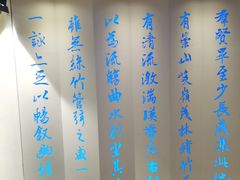 羣賢畢至少長咸集此地
有崇山峻領茂林脩竹又
有清流激湍暎帶左右
以為流觴曲水列坐其
雖無絲竹管弦之盛一
一詠亦足以暢敘幽情